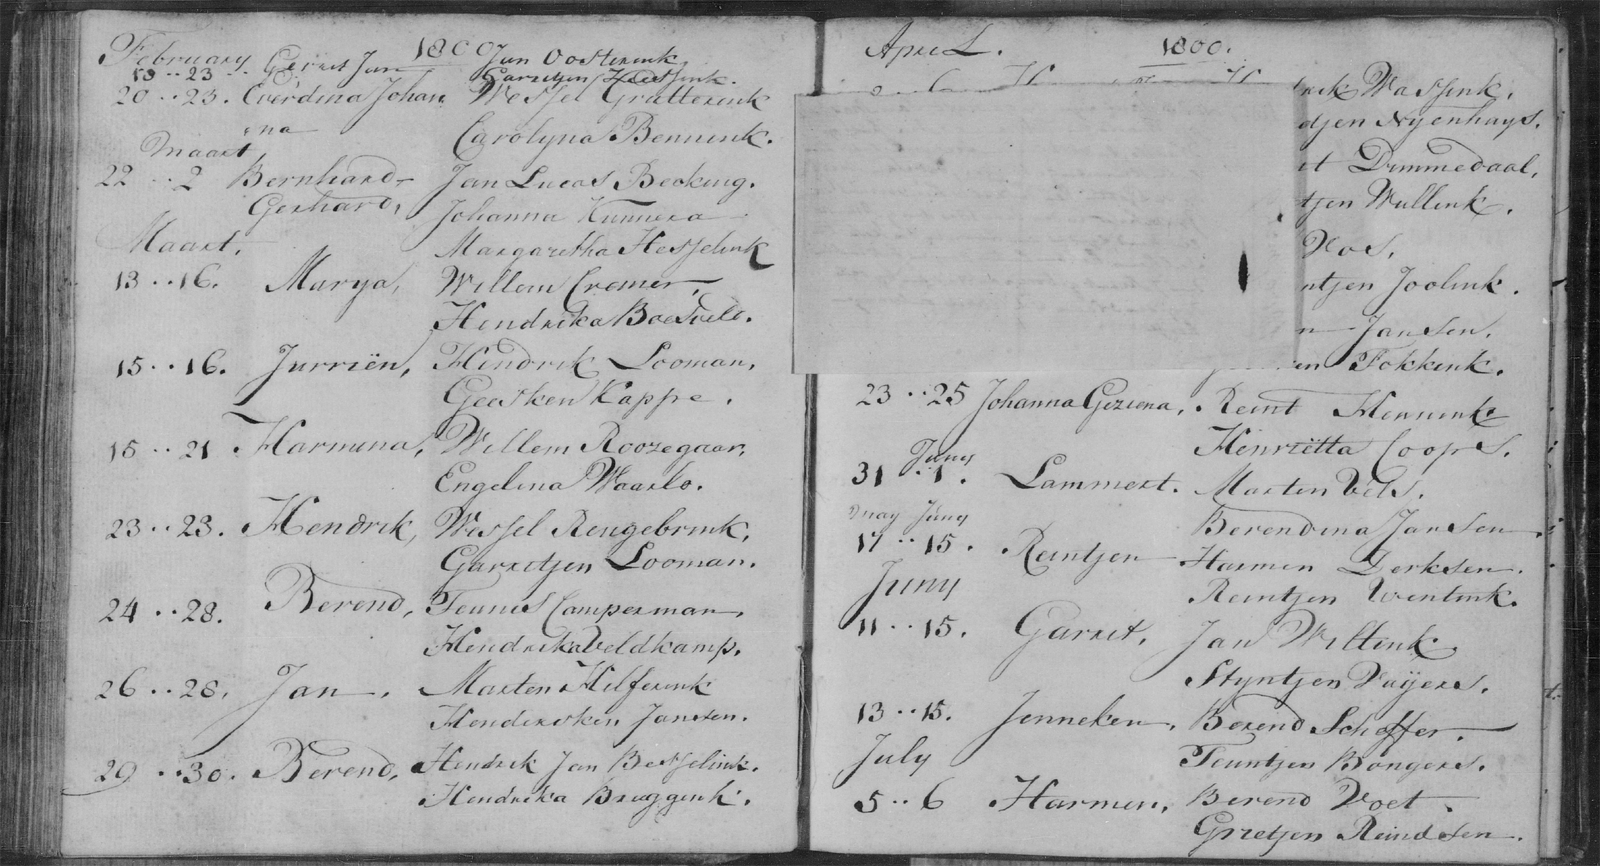 February 1800
18 .. 23 .. Gerrit Jan Jan Oosterink
Garritjen
20 .. 23. Everdina Johan Wessel Grutterink
na Carolyna Bennink.
Maart
22 .. 2 Bernhard Jan Lucas Becking.
Gerhard, Johanna Kunnera
Maart, Margaretha Hesselink
13 .. 16. Marya, Willem Cremer,
Hendrika Boesveld.
15 .. 16. Jurriën, Hendrik Looman,
Geesken Kappe.
18 .. 21 Harmina, Willem Roozegaar,
Engelina Waarlo.
23 .. 23. Hendrik, Wessel Rengebrink,
Garritjen Looman.
24 .. 28. Berend, Teunis Camperman,
Hendrika Veldkamp.
26 .. 28, Jan, Marten Hilferink
Hendersken Jansen.
29 .. 30. Berend, Hendrik Jan Besselink.
Hendrika Bruggink.
April. 1800.
rik Wassink.
djen Nyenhuys.
it Dimmedaal,
tjen Wullink.
Vos,
ntjen Joolink.
n Jansen.
en Fokkink.
23 .. 25 Johanna Geziena, Reint Hennink
Henriëtta Coops.
Juny
31 .. 1. Lammert. Marten Vels.
may Juny Berendina Jansen
17 .. 15. Reintjen Harmen Derksen.
Juny Reintjen Wentink.
11 .. 15. Garrit, Jan Wiltink
Styntjen Vaÿers.
13 .. 15. Jenneken, Berend Schoffer.
July Teuntjen Bongers.
5 .. 6 Harmen, Berend Voet.
Grietjen Reindsen.